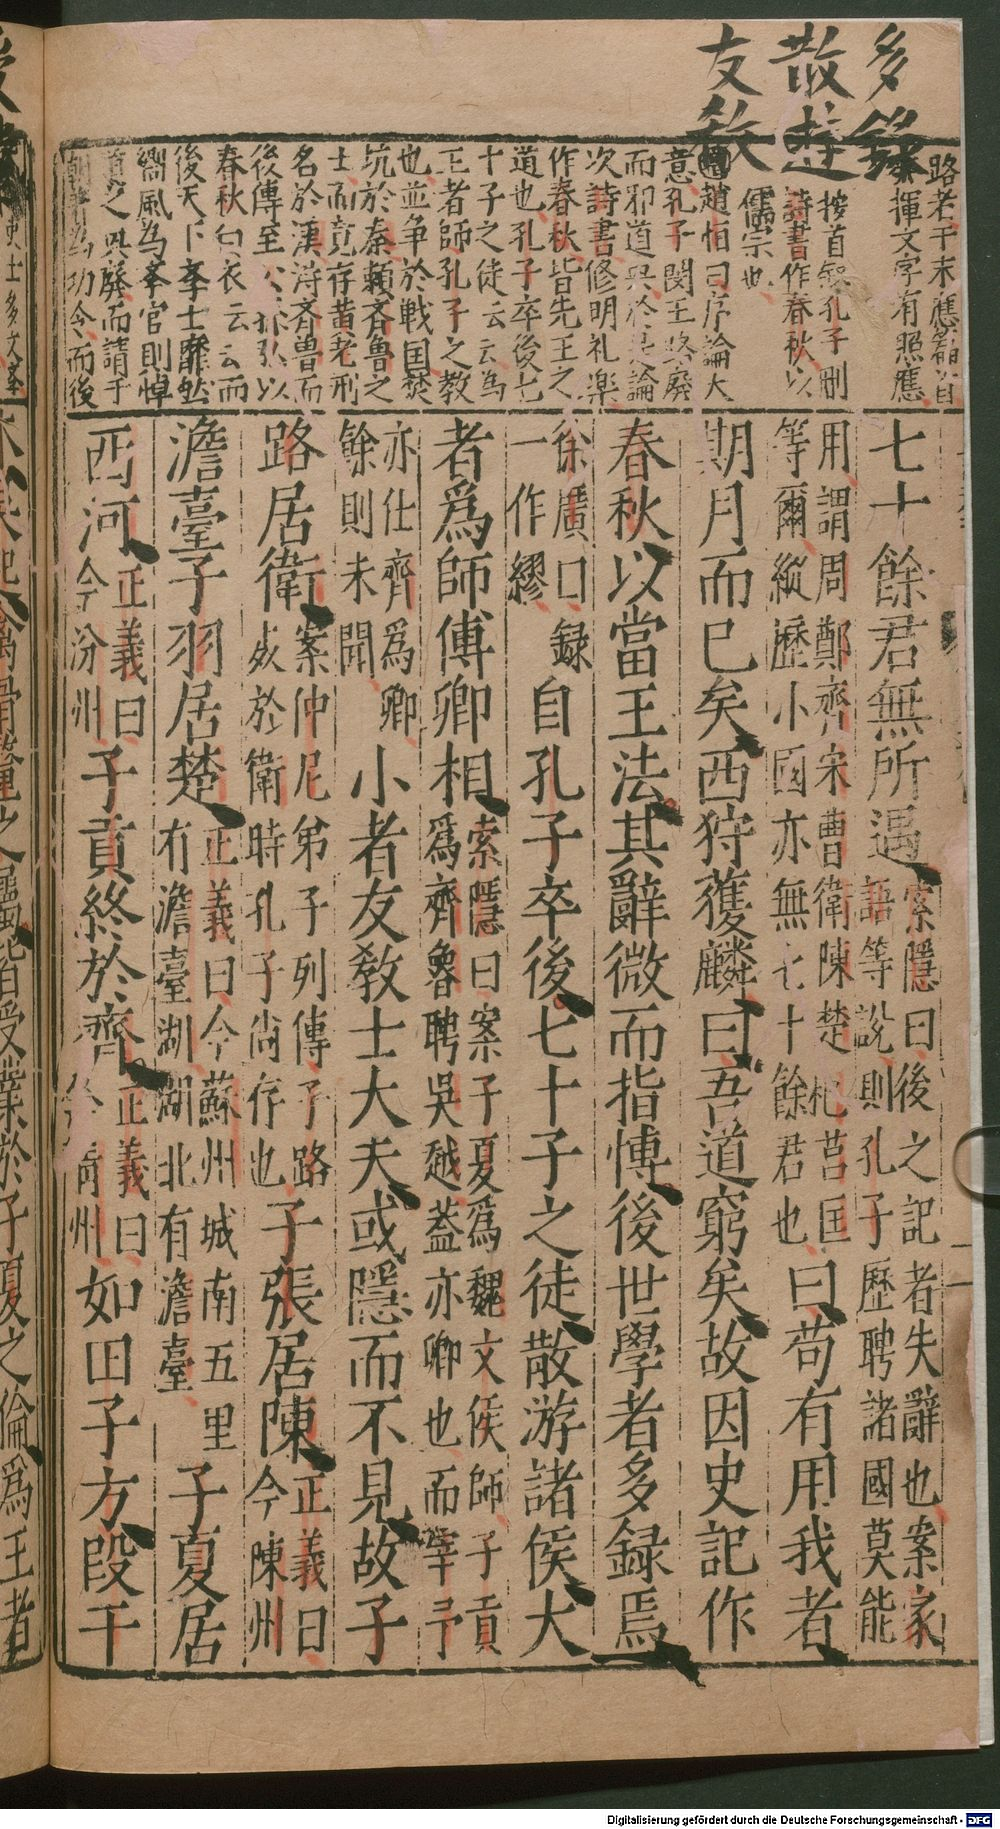 多錄
散遊
友教
路者干末應篇首
揮文字有照應
按首叙孔子刪
詩書作春秋以
儒宗也
趙恒曰序論大
意孔子閔王路廢
而邪道興於是論
次詩書修明礼樂
作春秋皆先王之
道也孔子卒後七
十子之徒云云為
王者師孔子之教
也並争於戦国焚
坑於秦頼斉魯之
士而竟存黄老刑
名於漢
後傳至公孫弘以
春秋白衣云云而
後天下斈士靡然
嚮風為斈官則悼
道之欝廢而請于
為功令而後
七十餘君無所遇索隱曰後之記者失辭也案家
語等說則孔子歷聘諸國莫能
用謂周鄭齊宋曹衛陳楚杞莒匡
等爾縱歷小國亦無七十餘君也曰苟有用我者
期月而已矣西狩獲麟曰吾道窮矣故因史記作
春秋以當王法其辭微而指博後世學者多録焉
徐廣曰録
一作繆自孔子卒後七十子之徒散游諸侯大
者爲師傅卿相索隱曰案子夏爲魏文侯師子貢
爲齊魯聘吳越蓋亦卿也而宰予
亦仕齊爲卿
餘則未聞小者友敎士大夫或隱而不見故子
路居衛案仲尼弟子列傳子路
㱕於衛時孔子尚存也子張居陳正義曰
今陳州
澹臺子羽居楚正義曰今蘇州城南五里
有澹臺湖湖北有澹臺子夏居
西河正義曰
今汾州子貢終於齊正義曰
今青州如田子方段干
Digitalisierung gefördert durch die Deutsche Forschungsgemeinschaft · DFG